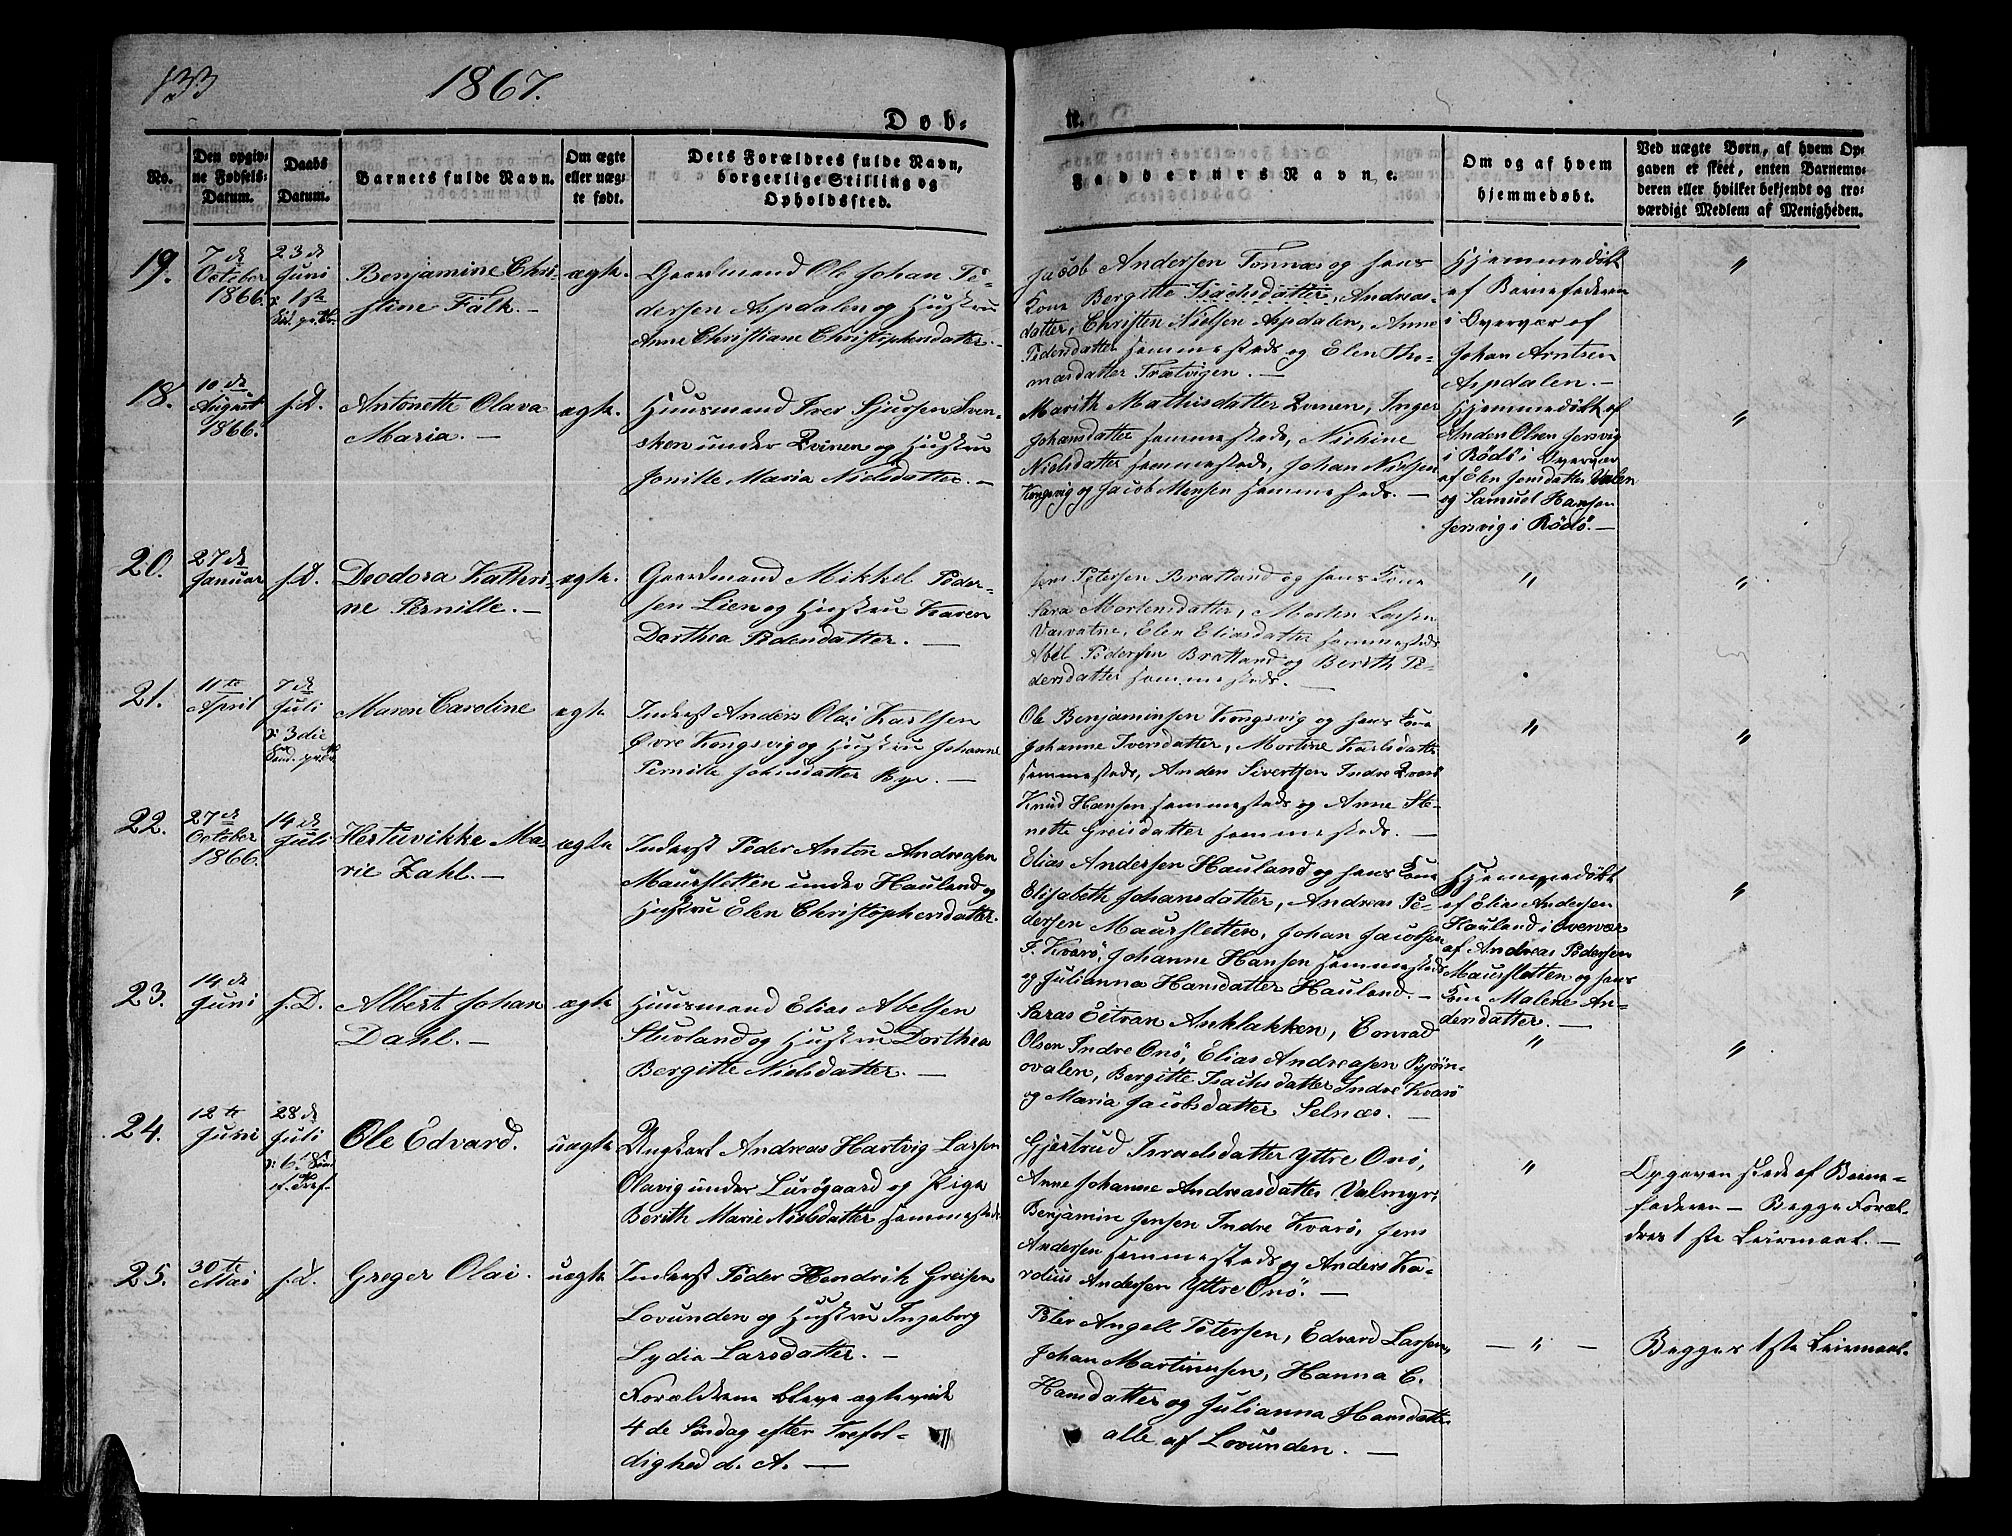 133
1867.
Dob-
n.
No.
Den opgiv-
ne Fødsels-
Datum.
Daabs
Datum.
Barnets fulde Navn.
Om ægte
eller uæg-
te født.
Dets Forældres fulde Navn,
borgerlige Stilling og
Opholdssted.
Faddernes Navne.
Om og af hvem
hjemmedøbt.
Ved uægte Børn, af hvem Op-
gaven er skeet, enten Barnemo-
deren eller hvilket bekjendt og tro-
værdigt Medlem af Menigheden.
19.
7de
October
1866.
23de
Juni
Benjamine Chri-
stine Falk. —
ægte.
Gaardmand Ole Johan Pe-
dersen Aspdalen og Hustru
Anne Christiane Christophersdatter. —
Jacob Andersen Tonnæs og hans
Kone Bergitte Isachsdatter, Andreas-
datter, Christen Nielsen Aspdalen, Anne
Pedersdatter sammesteds og Elen Tho-
masdatter Trætvigen. —
Hjemmedøbt
af Barnefaderen
i Overvær af
Johan Arntsen
Aspdalen. —
"
18.
10de
August
1866.
s.D.
Antonette Olava
Maria. —
ægte.
Huusmand Iver Sjursen Sven-
sken under Qvinen og Hustru
Jonille Maria Nielsdatter. —
Marith Mathisdatter Qvinen, Inger
Johansdatter sammesteds, Nichine
Nielsdatter sammesteds, Johan Nielsen
Kongsvig og Jacob Monsen sammesteds. —
Hjemmedøbt af
Anders Olsen Jersvig
i Rødø i Overvær
af Elen Jensdatter Valen
og Samuel Hansen
Jersvig i Rødø. —
"
20.
27de
Januar
s.D.
Deodora Kathri-
ne Pernille. —
ægte.
Gaardmand Mikkel Peder-
sen Lien og Hustru Karen
Dorthea Pedersdatter. —
Jens Petersen Bratland og hans Kone
Sara Mortensdatter, Morten Larsen
Varvatne, Elen Eliasdatter sammesteds
Abel Pedersen Bratland og Berith Pe-
dersdatter sammesteds. —
"
"
21.
11te
April
7de
Juli
Maren Caroline
ægte
Inderst Anders Olai Karlsen
Øvre Kongsvig og Hustru Johanne
Pernille Johnsdatter Rye. —
Ole Benjaminsen Kongsvig og hans Kone
Johanne Iversdatter, Mortine Karlsdatter
sammesteds, Anders Sivertsen Indre Qvarø
Knud Hansen sammesteds og Anne Ste-
nette Greisdatter sammesteds. —
"
"
22.
27de
October
1866.
14de
Juli
Hertuvikke Ma-
rie Zahl. —
ægte
Inderst Peder Anton Andreasen
Maursletten under Hauland og
Hustru Elen Christophersdatter.
Elias Andersen Hauland og hans Kone
Elisabeth Johansdatter, Andreas Pe-
dersen Maursletten, Johan Jacobsen
I. Kvarø, Johanne Hansen sammesteds
og Julianna Hansdatter Hauland. —
Hjemmedøbt
af Elias Andersen
Hauland i Overvær
af Andreas Pedersen
Maursletten og hans
Kone Malene An-
dersdatter. —
"
23.
14de
Juni
s.D.
Albert Johan
Dahl. —
ægte
Huusmand Elias Abelsen
Stuvland og Hustru Dorthea
Bergitte Nielsdatter. —
Saras Eitran Anklakken, Conrad
Olsen Indre Onø, Elias Andreasen Bjørn-
ovalen, Bergitte Isachsdatter Indre Kvarø
og Maria Jacobsdatter Selnæs. —
"
"
24.
12te
Juni
28de
Juli
Ole Edvard.
uægte
Ungkarl Andreas Hartvig Larsen
Olavig under Lurøgaard og Pige
Berith Marie Nielsdatter sammesteds
Gjertrud Israelsdatter Yttre Onø,
Anne Johanne Andreasdatter Valmyr,
Benjamin Jensen Indre Kvarø, Jens
Andersen sammesteds og Anders Ka-
rolius Andersen Yttre Onø. —
"
Opgaven skede af Barne-
faderen — Begge Foræl-
dres 1ste Leiermaal. —
25.
30te
Mai
s.D.
Greger Olai.
uægte
Inderst Peder Hendrik Greisen
Lovunden og Hustru Ingeborg
Lydia Larsdatter. —
Forældrene bleve ægteviede
4de Søndag efter Trefol-
dighed d. A. —
Peter Angell Petersen, Edvard Larsen,
Johan Martinussen, Hanna C.
Hansdatter og Julianna Hansdatter
alle af Lovunden. —
— " —
Begges 1ste Leiermaal.